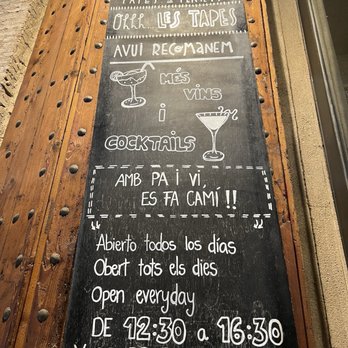 Ohhh, LES TAPES
AVUI RECOMANEM
MÉS
VINS
i
COCKTAILS
AMB PA i VI,
ES FA CAMÍ!!
"Abierto todos los días
Obert tots els dies
Open everyday
DE 12:30 a 16:30